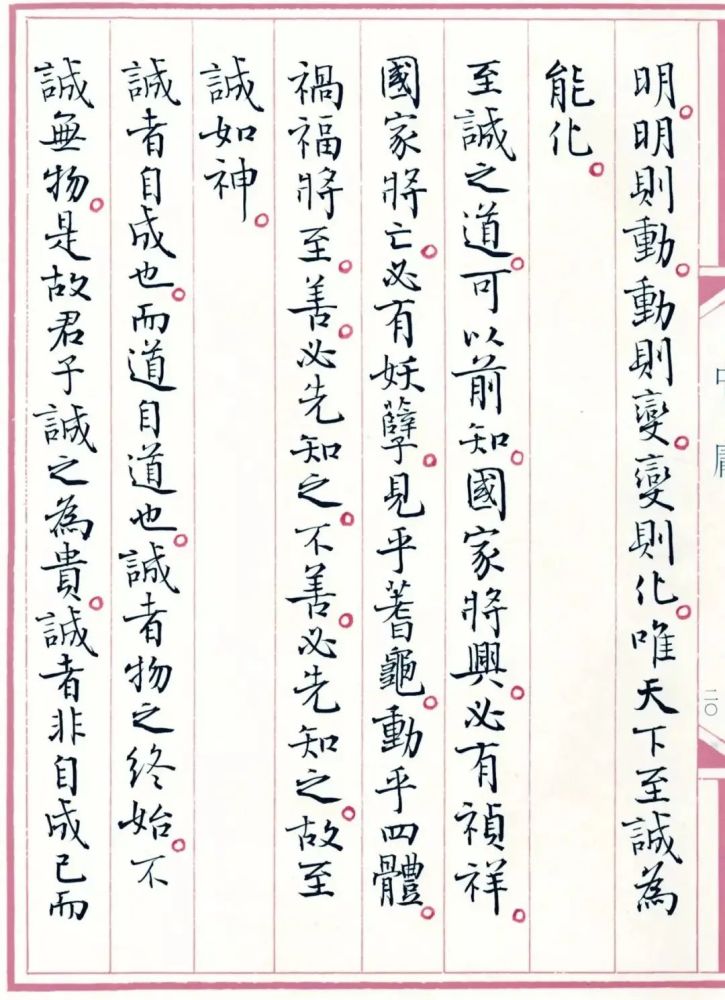 明。明則動。動則變。變則化。唯天下至誠為
能化。
至誠之道。可以前知。國家將興。必有禎祥。
國家將亡。必有妖孽。見乎蓍龜。動乎四體。
禍福將至。善。必先知之。不善。必先知之。故至
誠如神。
誠者自成也。而道自道也。誠者物之終始。不
誠無物。是故君子誠之為貴。誠者非自成己而
二〇